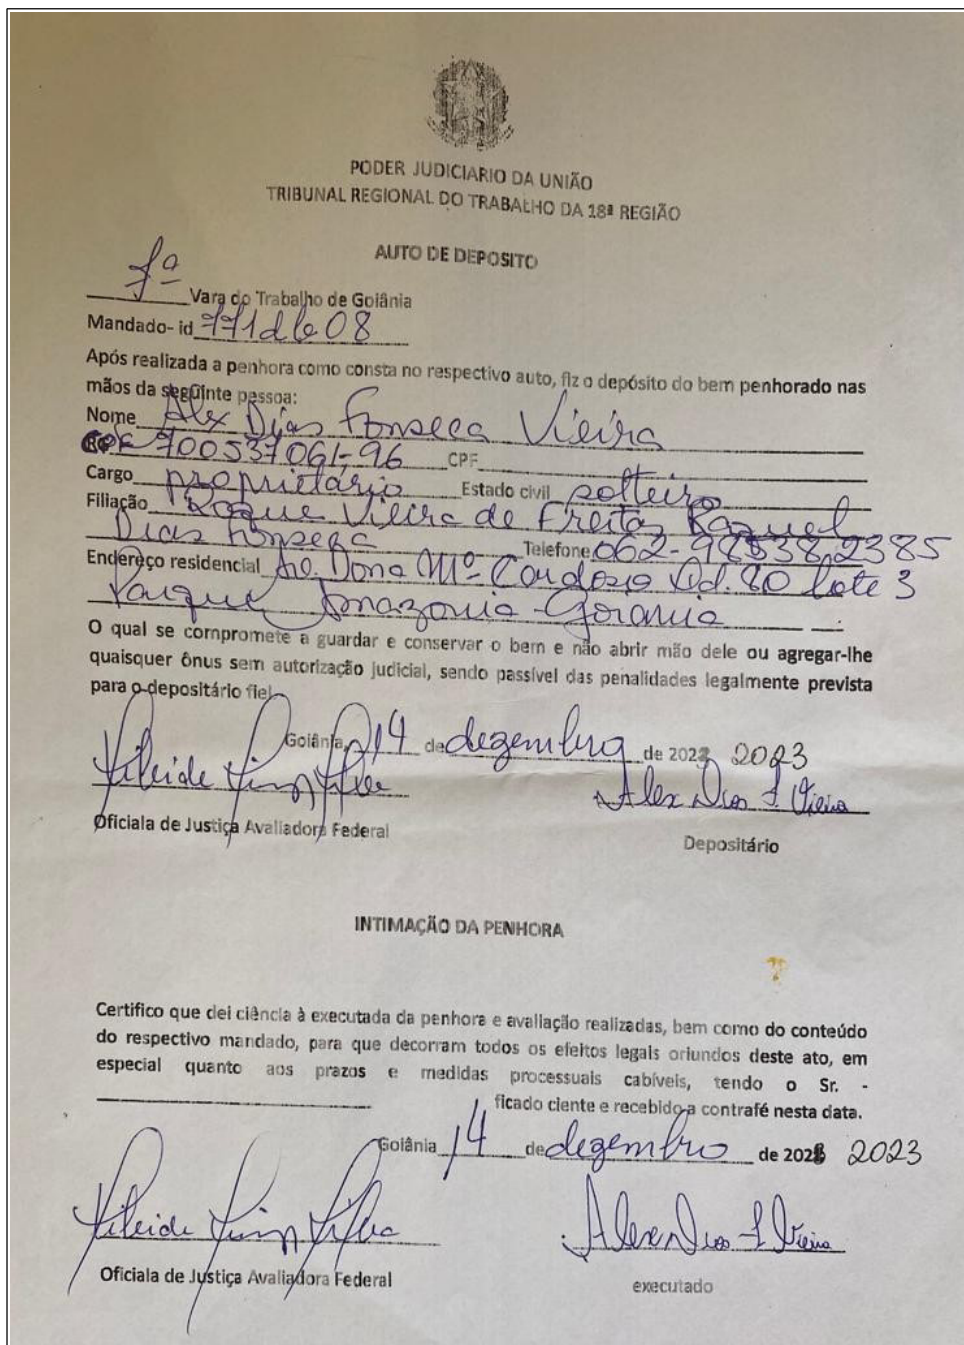 PODER JUDICIARIO DA UNIÃO
TRIBUNAL REGIONAL DO TRABALHO DA 18ª REGIÃO
AUTO DE DEPOSITO
Vara do Trabalho de Goiânia
Mandado- id 771db08
Após realizada a penhora como consta no respectivo auto, fiz o depósito do bem penhorado nas
mãos da seguinte pessoa:
Nome Alex Dias Fonseca Vieira
700537061-96 CPF
Cargo proprietário Estado civil solteiro
Filiação Roque Vieira de Freitas Raquel
Dias Fonseca Telefone
Endereço residencial Av. Dona Mª Cardoso Qd. 80 lote 3
Parque Amazonia - Goiania
O qual se compromete a guardar e conservar o bem e não abrir mão dele ou agregar-lhe
quaisquer ônus sem autorização judicial, sendo passível das penalidades legalmente prevista
para o depositário fiel.
Goiânia, 14 de dezembro de 2023
Alex Dias F Vieira
Oficiala de Justiça Avaliadora Federal
Depositário
INTIMAÇÃO DA PENHORA
Certifico que dei ciência à executada da penhora e avaliação realizadas, bem como do conteúdo
do respectivo mandado, para que decorram todos os efeitos legais oriundos deste ato, em
especial quanto aos prazos e medidas processuais cabíveis, tendo o Sr. -
ficado ciente e recebido a contrafé nesta data.
Goiânia 14 de dezembro de 2023
Alex Dias F Vieira
Oficiala de Justiça Avaliadora Federal
executado